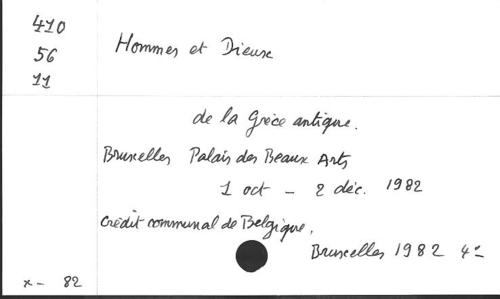 410
56
11
Hommes et Dieux
de la Grèce antique.
Bruxelles Palais des Beaux Arts
1 oct - 2 déc. 1982
Crédit communal de Belgique,
Bruxelles 1982 4°
x- 82